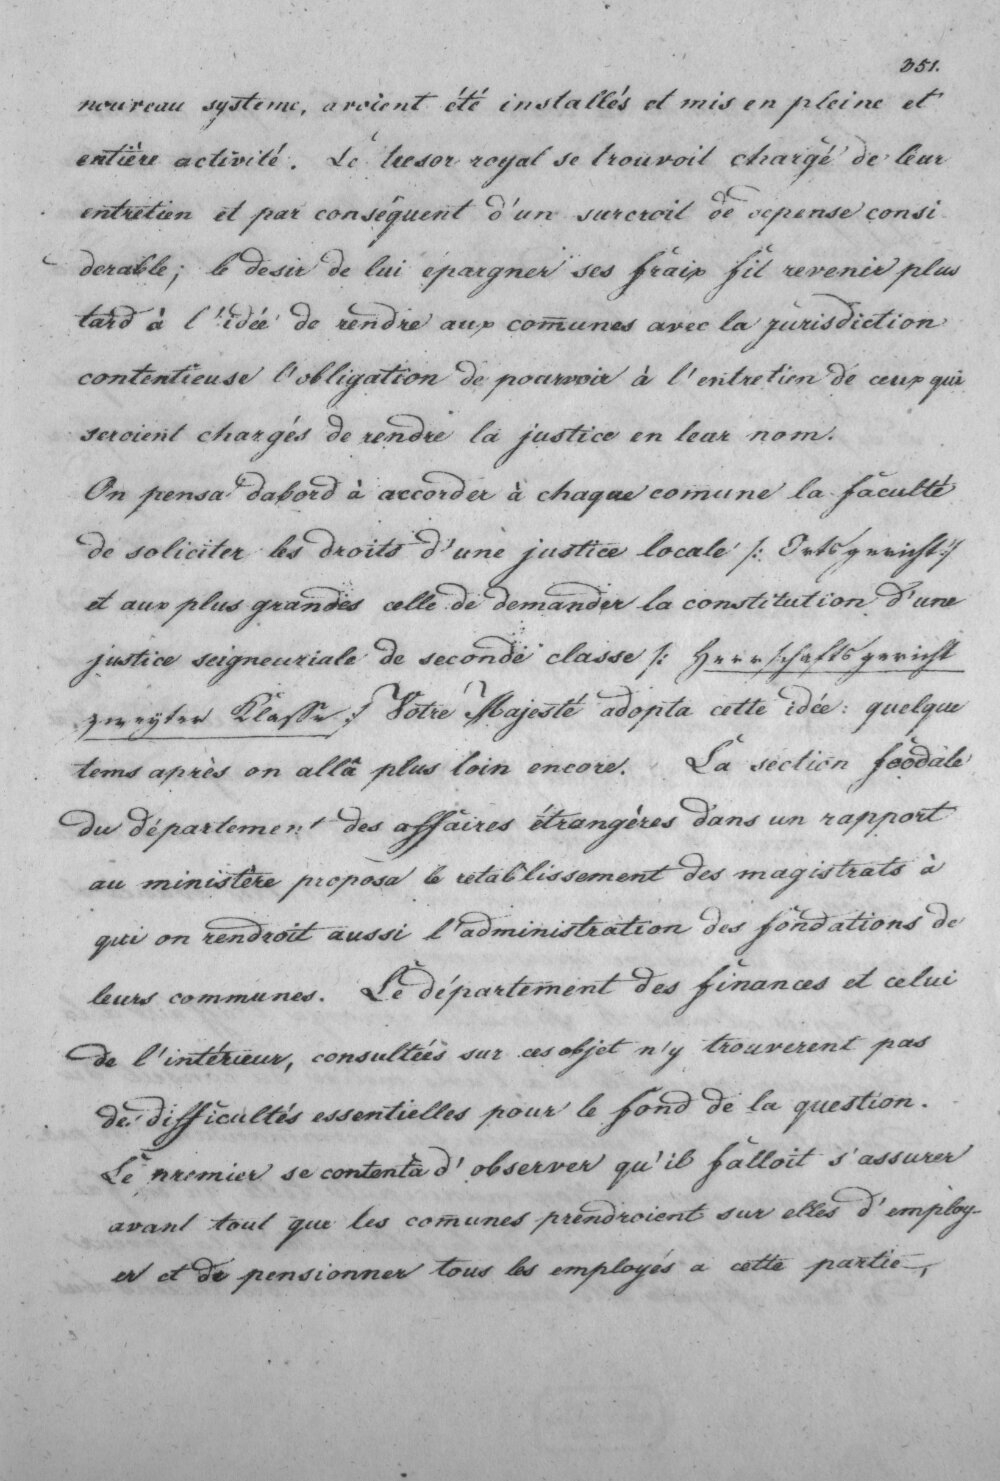 351.
nouveau systeme, avoient été installés et mis en pleine et
entière activité. Le tresor royal se trouvoit chargé de leur
entretien et par conséquent d'un surcroit de depense consi
derable; le desir de lui épargner ses fraix fit revenir plus
tard à l'idée de rendre aux com̄unes avec la jurisdiction
contentieuse l'obligation de pourvoir à l'entretien de ceux qui
seroient chargés de rendre la justice en leur nom.
On pensa dabord à accorder à chaque comune la faculté
de soliciter les droits d'une justice locale /: Ortsgericht :/
et aux plus grandes celle de demander la constitution d'une
justice seigneuriale de seconde classe /: Herrschaftsgericht
zweyter Klasse :/ Votre Majesté adopta cette idée: quelque
tems après on allà plus loin encore. La section féodale
du département des affaires étrangères dans un rapport
au ministère proposa le retablissement des magistrats à
qui on rendroit aussi l'administration des fondations de
leurs communes. Le département des finances et celui
de l'intérieur, consultées sur ces objet n'y trouverent pas
de difficultés essentielles pour le fond de la question.
Le premier se contenta d'observer qu'il falloit s'assurer
avant tout que les com̄unes prendroient sur elles d'employ-
er et de pensionner tous les employés a cette partie,